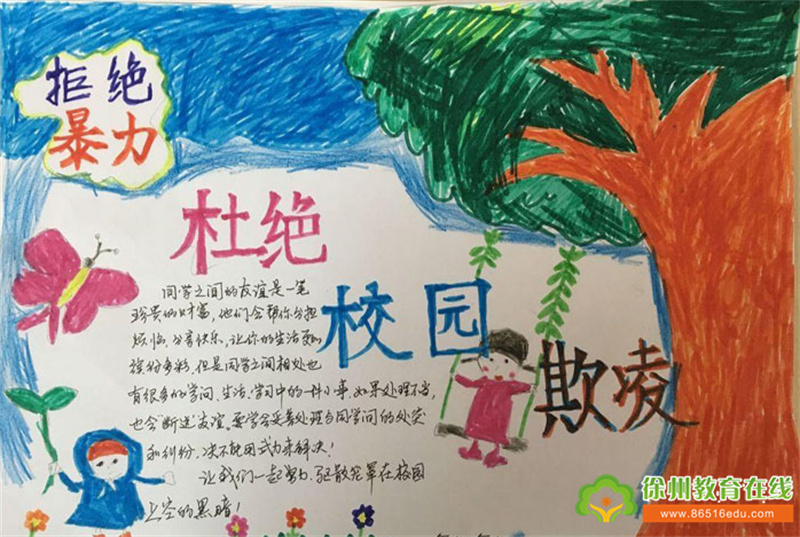 拒绝
暴力
杜绝
校园
欺凌
同学之间的友谊是一笔
珍贵的财富，他们会帮你分担
烦恼，分享快乐，让你的生活更加
缤纷多彩，但是同学之间相处也
有很多的学问，生活、学习中的一件小事，如果处理不当，
也会“断送”友谊，要学会妥善处理与同学间的冲突
和纠纷，决不能用武力来解决！
让我们一起努力，驱散笼罩在校园
上空的黑暗！
徐州教育在线
www.86516edu.com